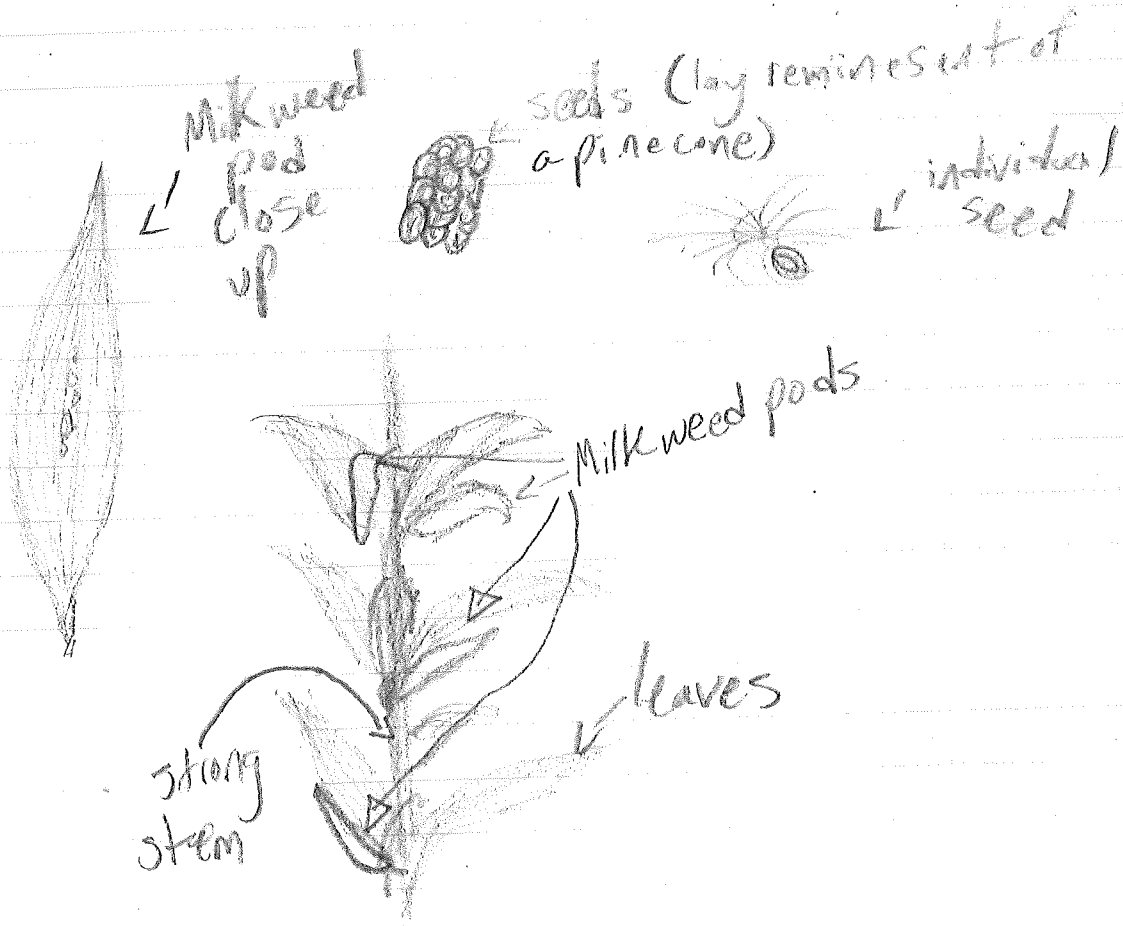 Milkweed
pod
close
up
seeds (lay reminesent of
a pinecone)
individual
seed
Milkweed pods
leaves
strong
stem